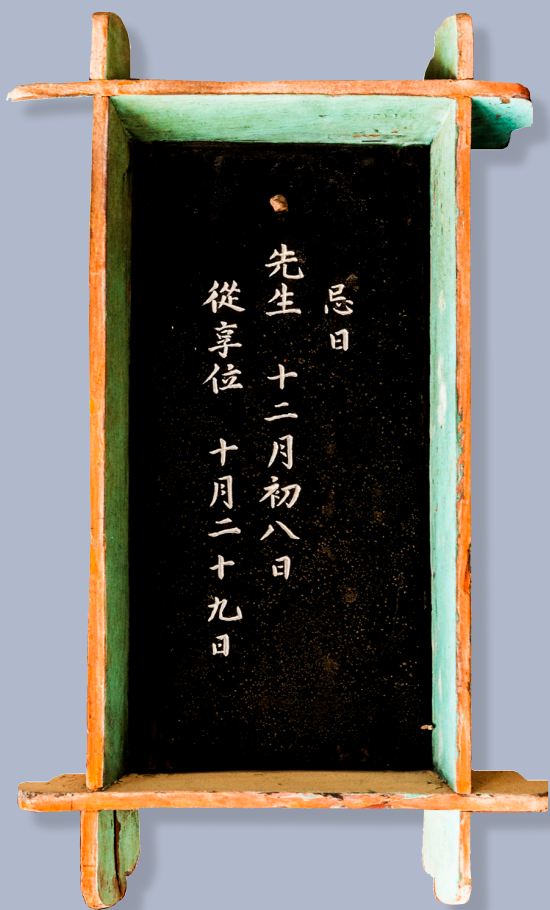 忌日
先生 十二月初八日
從享位 十月二十九日